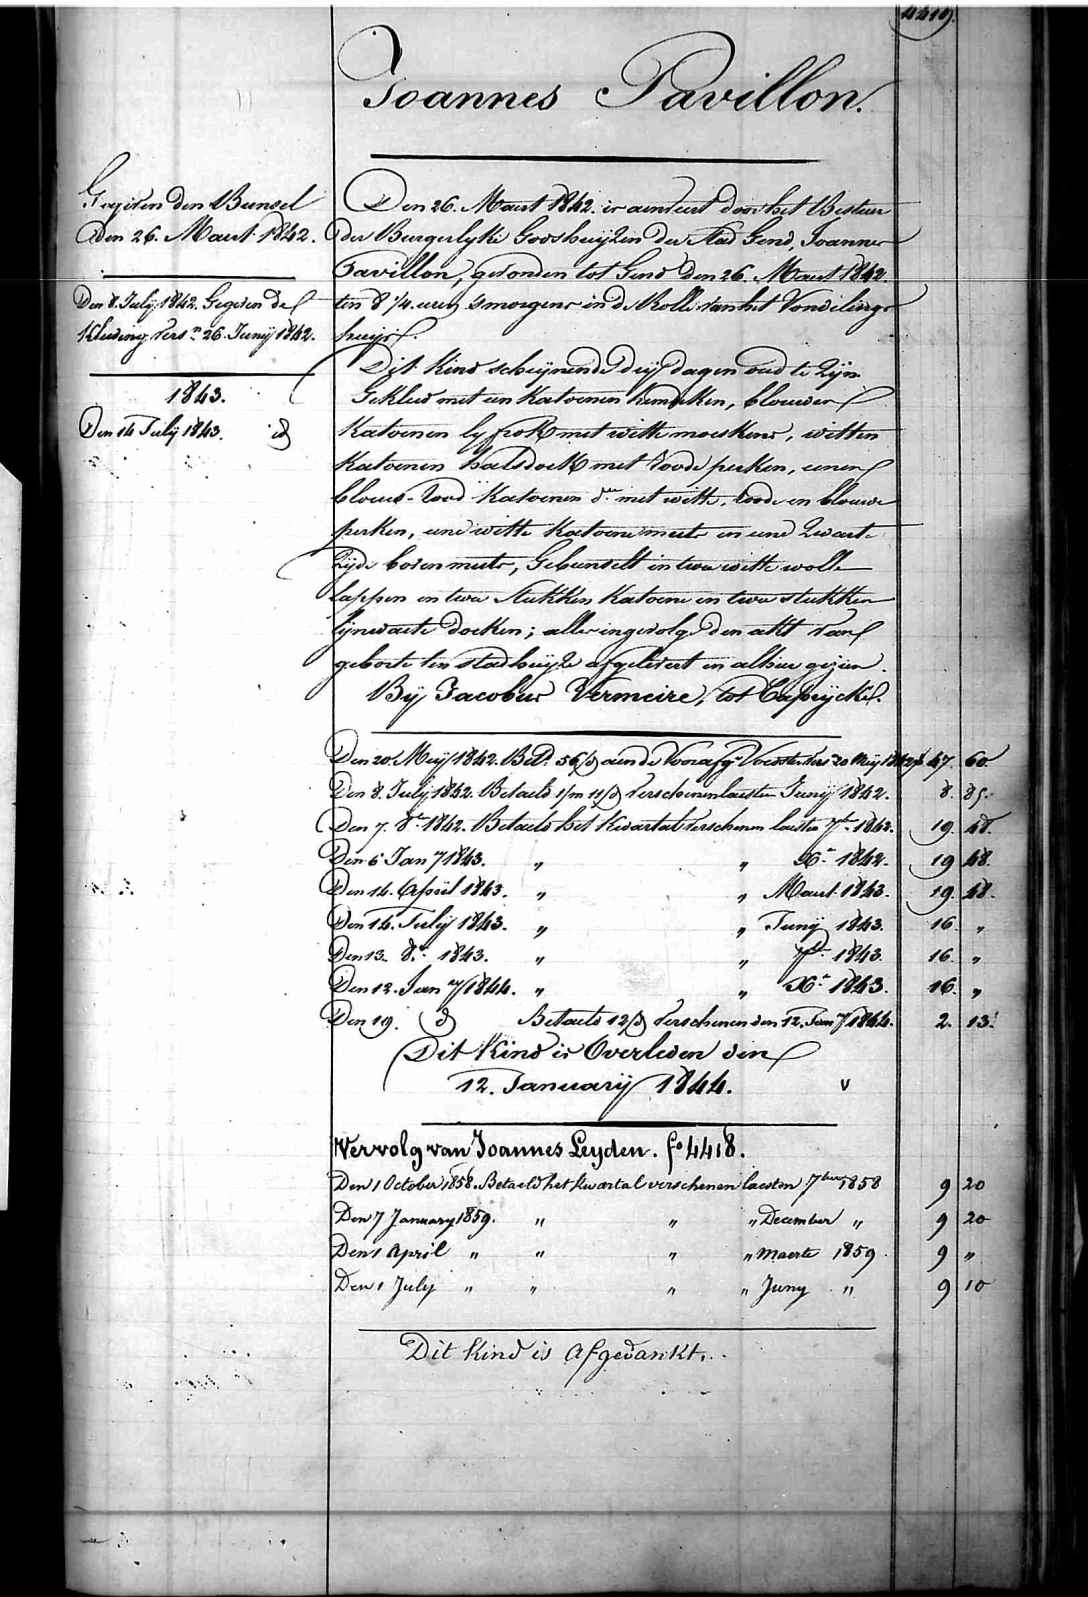 4419.
Joannes Pavillon.
Gegeven den Bunsel
den 26. Maart 1842.
Den 8. July 1842. Gegeven de
Kleeding vers.n 26. Junij 1842.
1843.
Den 14 July 1843. id
Den 26. Maart 1842. is aenveert door het Bestuer
der Burgerlyke Godshuijzen der stad Gend, Joannes
Pavillon, gevonden tot Gend den 26. Maart 1842.
ten 8 1/4 uren smorgens in de Rolle van het Vondelings
huijs.
Dit kind scheijnende drij dagen oud te zijn
Gekleed met een Katoenen hemdeken, blouwen
Katoenen lijfrok met witte moeskens, witten
Katoenen halsdoek met roode perken, eenen
blouw-rood Katoenen dn met witte, roode en blouwe
perken, eene witte Katoene muts en eene zwarte
zijde bovenmuts, Gebunselt in twee witte wolle
lappen en twee stukken Katoene en twee stukken
lijnwaete doeken; alles ingevolge den akt van
geboorte ten stadhuijze afgelevert en alhier gezien.
Bij Jacobus Vermeire, tot Caprijcke.
Den 20 Meij 1842. Bet.d 56/d aen de Voorafg.e Voedster vers 20 Meij 1842 47. 60
Den 8. July 1842. Betaeld 1/m 11/d verschenen laesten Junij 1842. 8. 85.
Den 7. 8.br 1842. Betaeld het Kwartal verschenen laesten 7.br 1842. 19. 48.
Den 6 Jan.y 1843. " " X.r 1842. 19 48.
Den 14. April 1843. " " Maart 1843. 19. 48.
Den 14. July 1843. " " Junij 1843. 16. "
Den 13. 8.br 1843. " " 7.br 1843. 16. "
Den 12. Jan.y 1844. " " X.r 1843. 16. "
Den 19. d Betaeld 12/d verschenen den 12. Jan.y 1844. 2. 13.
Dit Kind is Overleden den
12. Januarij 1844. v
Vervolg van Joannes Leyden. fo 4418.
Den 1 October 1858. Betaeld het kwartal verschenen laesten 7ber 1858 9 20
Den 7 January 1859. " " " December " 9 20
Den 1 April " " " " Maerte 1859 9 "
Den 1 July " " " " Juny " 9 10
Dit Kind is afgedankt.